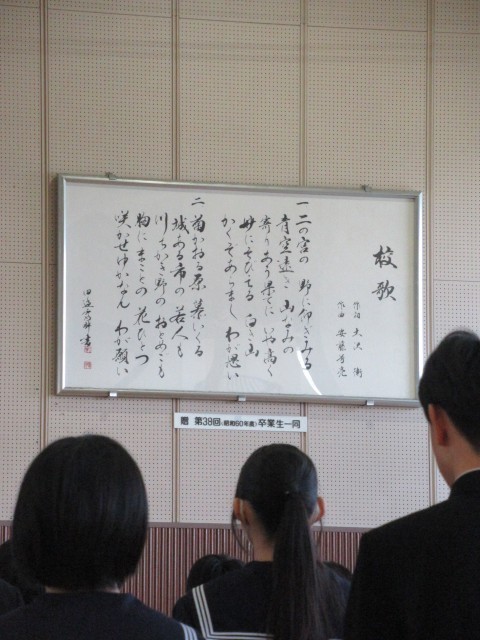 校歌
作詞 大沢 衛
作曲 安藤芳亮
一 二の宮の 野に仰ぎみる
青空遠き 山なみの
寄りあう果てに いや高く
妙にそびてる 白き山
かくてあらまし わが思い
二 菊かおる原 いくる
城ある市の 若人も
川ちかき野の おとめごも
胸にまことの 花ひとつ
咲かせゆかなん わが願い
書
贈 第38回(昭和60年度)卒業生一同